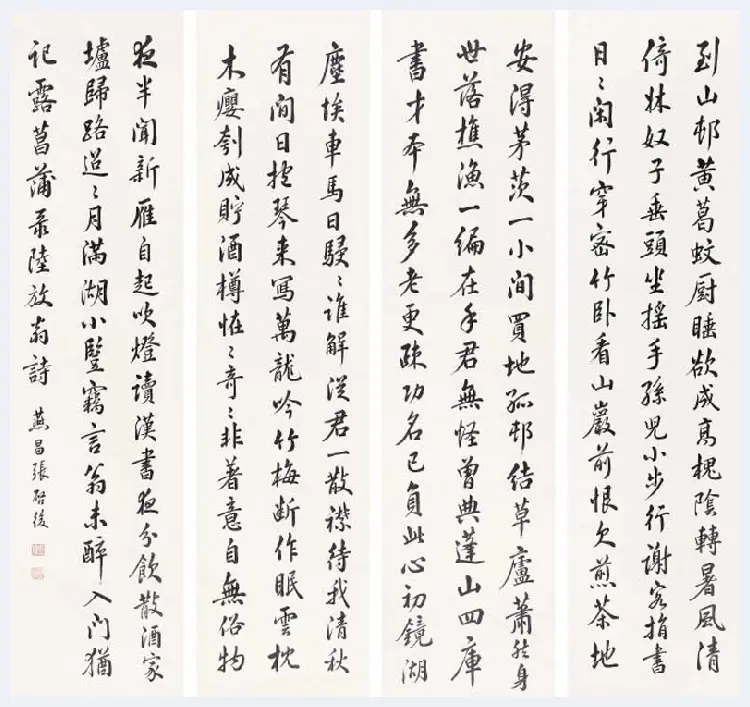 到山邨黄葛蚊厨睡欲成高槐陰轉暑風清
倚牀奴子垂頭坐摇手孫兒小步行謝客指書
日〻閑行穿密竹卧看山巖前恨欠煎茶地
安得茅茨一小間買地孤邨結草廬蕭然身
世落樵漁一编在手君無怪曾典蓬山四庫
書才本無多老更疎功名已負此心初鏡湖
塵埃車馬日駸〻誰解從君一散襟待我清秋
有間日抱琴来寫萬龍吟竹梅断作眠雲枕
木癭刳成貯酒樽恠〻奇〻非著意自無俗物
夜半聞新雁自起吹燈讀漢書夜分飲散酒家
壚歸路迢〻月滿湖小豎竊言翁未醉入門猶
記露菖蒲录陸放翁詩 燕昌張啓後